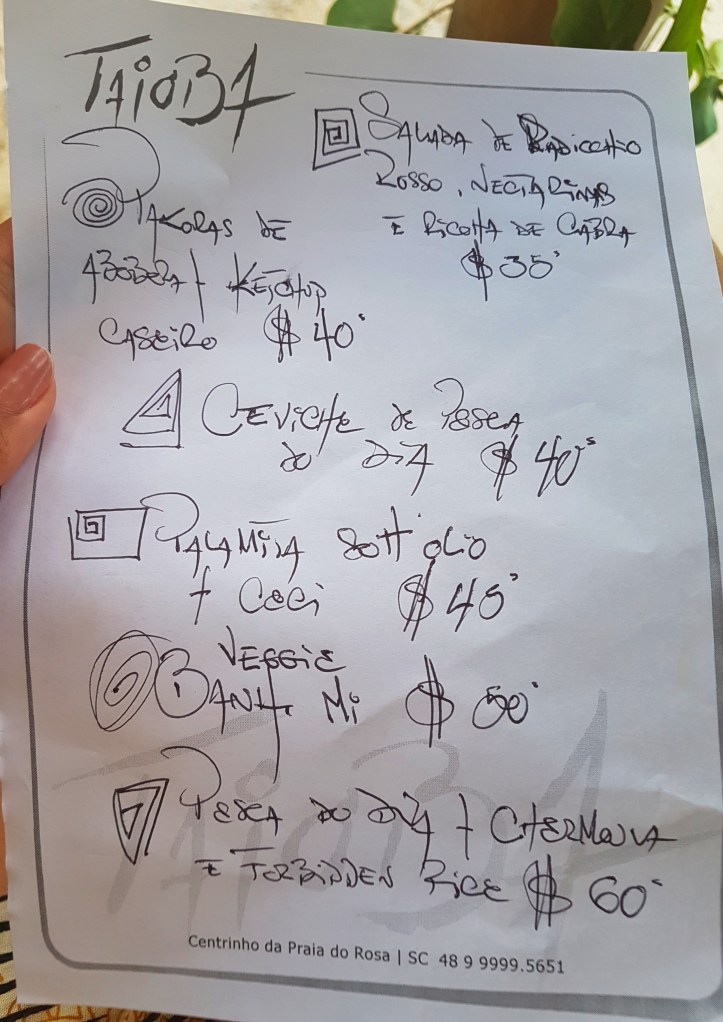 TAIOBA
SALADA DE RADICCHIO
ROSSO, NECTARINAS
E RICOTTA DE CABRA
$ 35
PAKORAS DE
ABÓBORA + KETCHUP
CASEIRO $ 40
CEVICHE DE PESCA
DO DIA $ 40
PALAMITA SOTT'OLIO
+ CECI $ 45
VEGGIE
BANH MI $ 50
PESCA DO DIA + CHERMOULA
E FORBIDDEN RICE $ 60
TAIOBA
Centrinho da Praia do Rosa | SC 48 9 9999.5651